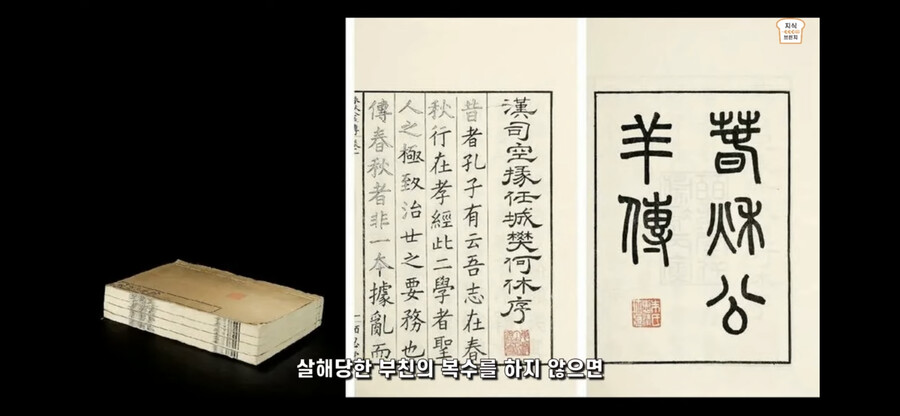 지식
브런치
春秋公
羊傳
漢司空掾任城樊何休序
昔者孔子有云吾志在春
秋行在孝經此二學者聖
人之極致治世之要務也
傳春秋者非一本據亂而
살해당한 부친의 복수를 하지 않으면